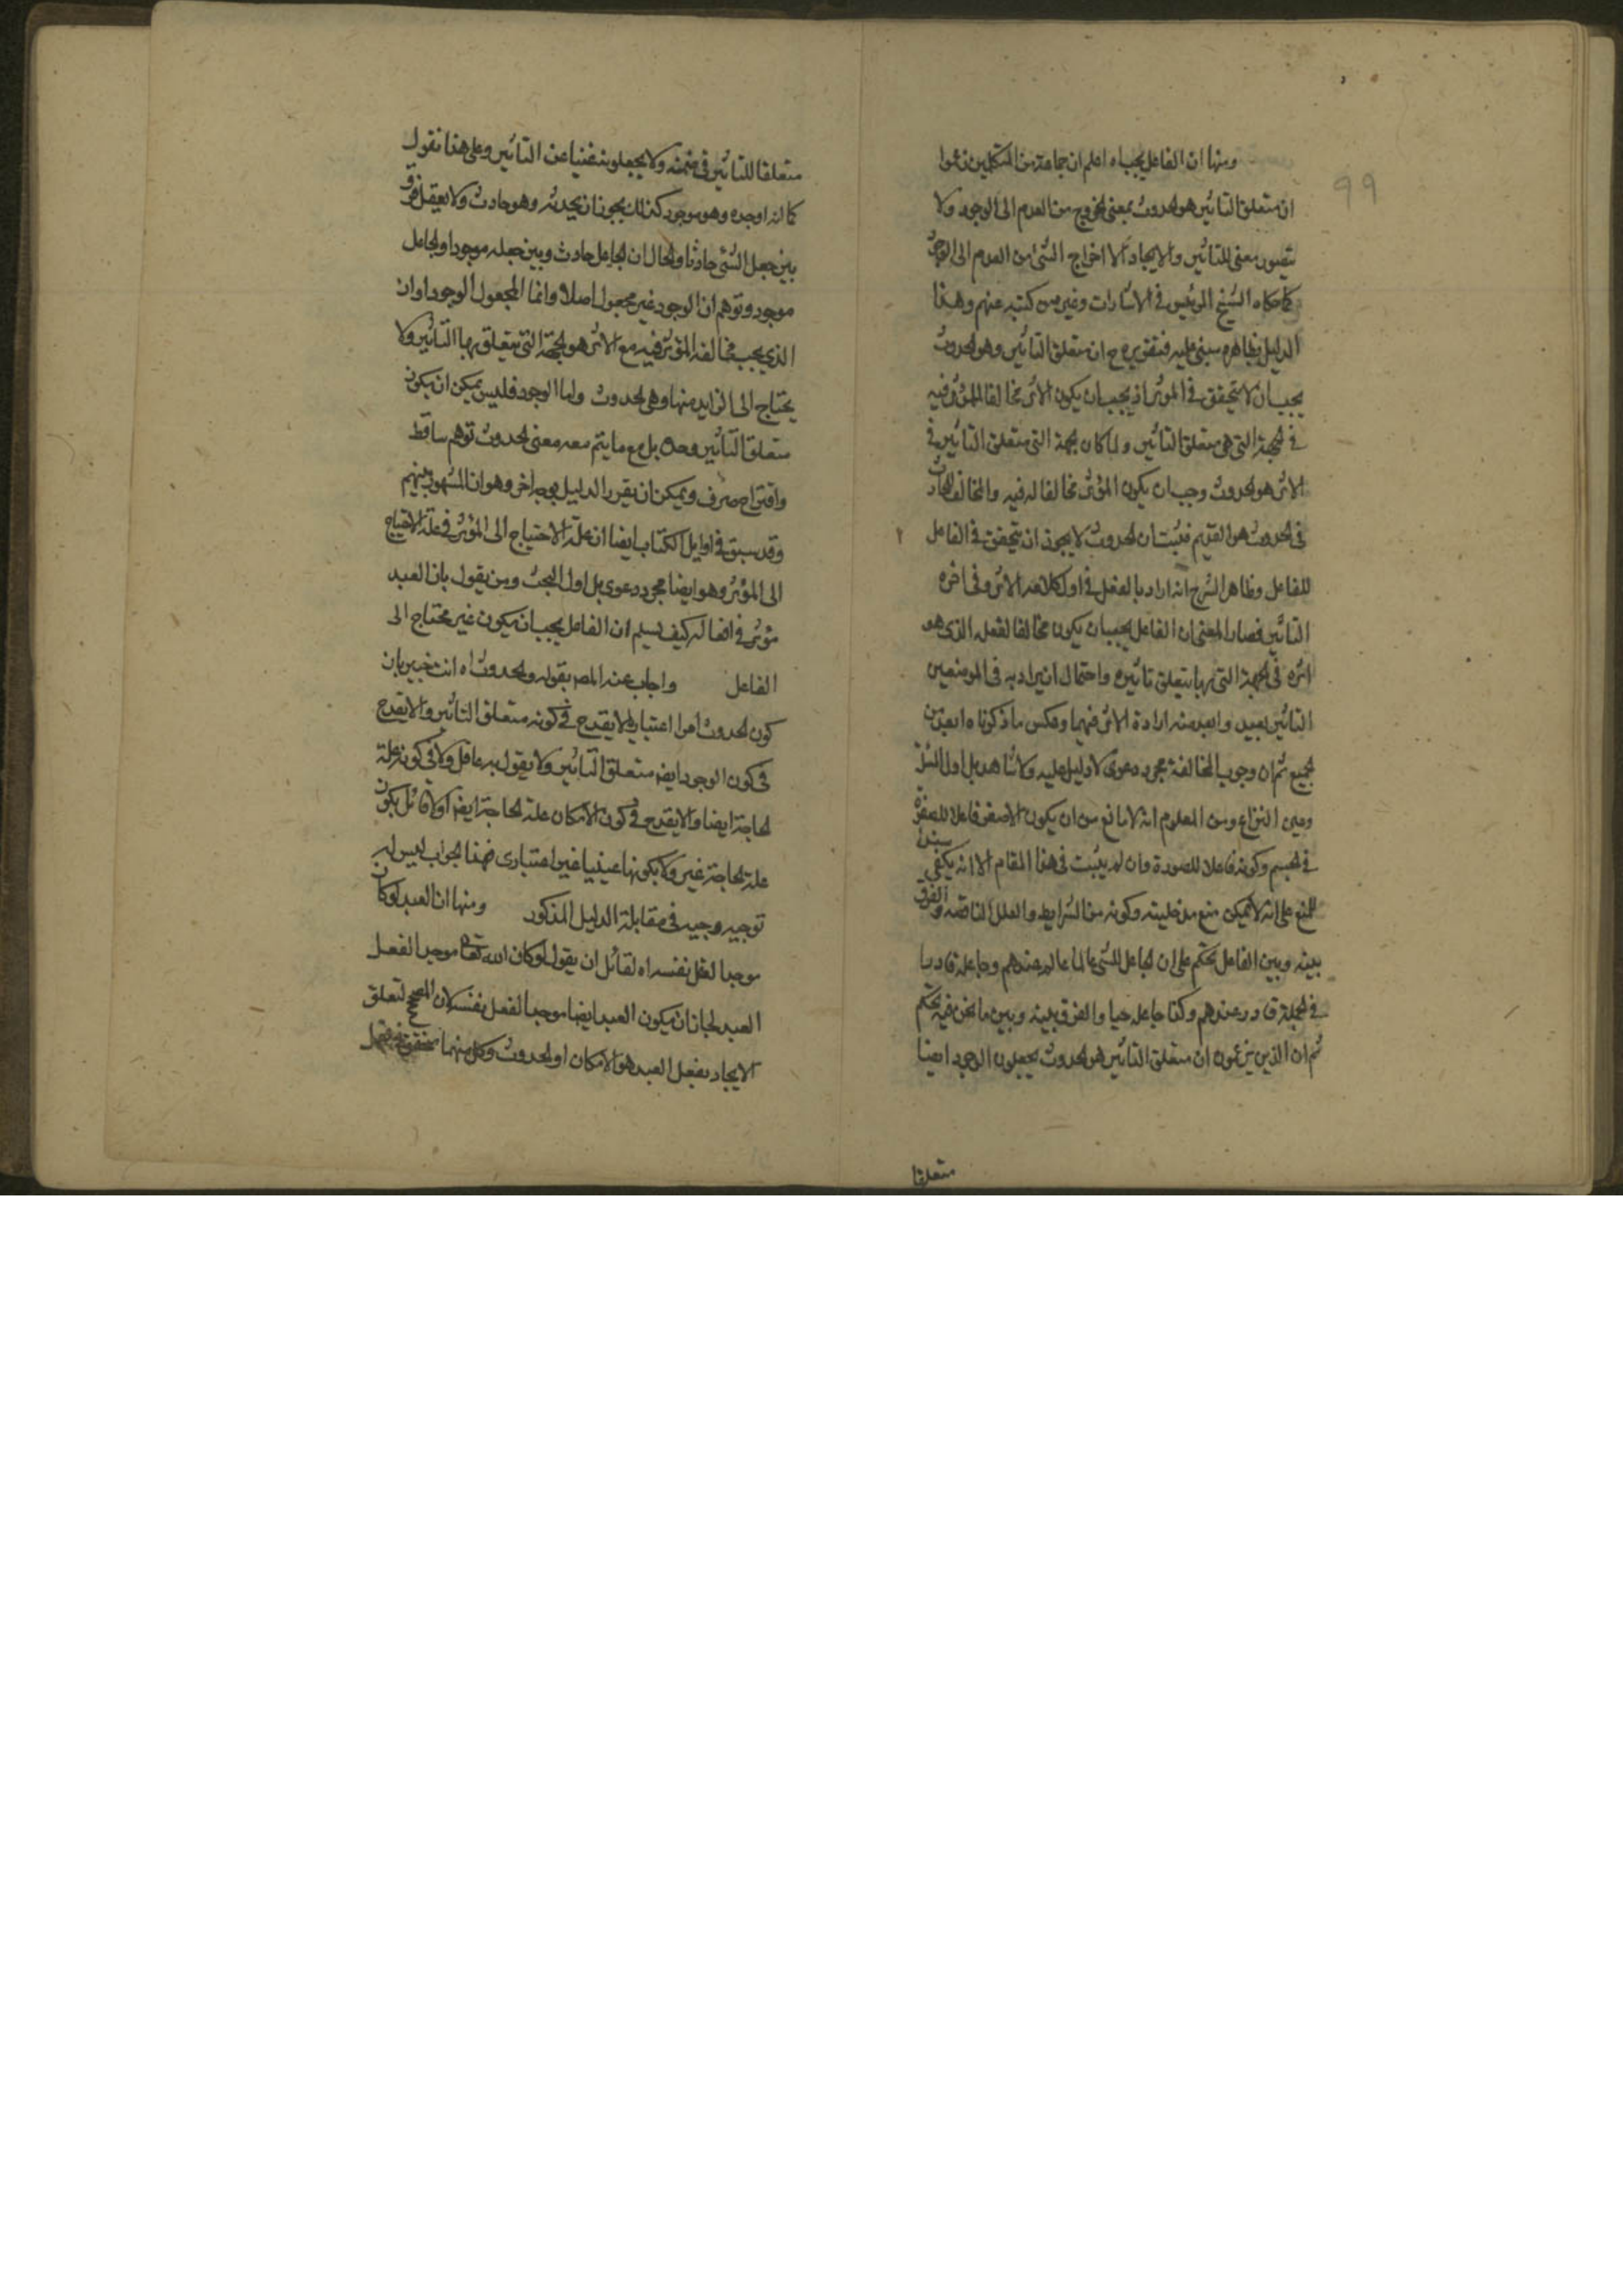 ومنها ان الفاعل يجب اه اعلم ان جماعة من المتكلمين زعموا
99
ان متعلق التاثير هو الحدوث بمعنى الخروج من العدم الى الوجود ولا
يتصور معنى للتاثير والايجاد الا اخراج الشئ من العدم الى الوجود
كما حكاه الشيخ الرئيس في الاشارات وغير من كتبه عنهم وهذا
الدليل بظاهره مبني عليه فتقريره ح ان متعلق التاثير وهو الحدوث
يجب ان لا يتحقق في الموثر اذ يجب ان يكون الاثر مخالفا للموثر فيه
في الجهة التي هي متعلق التاثير ولما كان الجهة التي متعلق التاثير في
الاثر هو الحدوث وجب ان يكون المؤثر مخالفا له فيه والمخالف للحادث
في الحدوث هو القديم فثبت ان الحدوث لا يجوز ان يتحقق في الفاعل ٢
للفاعل وظاهر الشرح انه اراد بالفعل في اول كلامه الاثر وفي اخره
التاثير فصار المعنى ان الفاعل يجب ان يكون مخالفا لفعله الذي هو
اثره في الجهة التي بها يتعلق تاثيره واحتمال ان يراد به في الموضعين
التاثير بعيد وابعد منه ارادة الاثر فيهما وعكس ما ذكرناه ابعد من
الجميع ثم ان وجوب المخالفة مجرد دعوى لا دليل عليه ولا شاهد بل اول المسئلة
وعين النزاع ومن المعلوم انه لا مانع من ان يكون الاصفر فاعلا للصفرة
في الجسم وكونه فاعلا للصورة وان لم يثبت في هذا المقام الا انه يكفي
للمنع على انه لا يمكن منع مدخليته وكونه من الشرايط والعلل الناقصة والفرق
بينه وبين الفاعل تحكم على ان الجاعل للشئ عالما عالم عندهم وجاعله قادرا
في الجملة قادر عندهم وكذا جاعله حيا والفرق بينه وبين ما نحن فيه تحكم
ثم ان الذين يزعمون ان متعلق التاثير هو الحدوث يجعلون الوجود ايضا
متعلقا
متعلقا للتاثير في ضمنه ولا يجعلونه غنيا عن التاثير وعلى هذا نقول
كما انه اوجده وهو موجود كذلك يجوز ان يحدثه وهو حادث ولا يعقل فرق
بين جعل الشئ حادثا والحال ان الجاعل حادث وبين جعله موجودا والجاعل
موجود وتوهم ان الوجود غير مجعول اصلا وانما المجعول الوجود او ان
الذي يجب مخالفة المؤثر فيه مع الاثر هو الجهة التي يتعلق بها التاثير ولا
يحتاج الى الزايد منها وهي الحدوث واما الوجود فليس يمكن ان يكون
متعلق التاثير وحده بل مع ما يتم معه معنى الحدوث توهم ساقط
واقتراح صرف ويمكن ان يقرر الدليل بوجه اخر وهو ان المشهور بينهم
وقد سبق في اوايل الكتاب ايضا ان علة الاحتياج الى المؤثر في علة الاحتياج
الى المؤثر وهو ايضا مجرد دعوى بل اول البحث ومن يقول بان العبد
مؤثر في افعاله كيف يسلم ان الفاعل يجب ان يكون غير محتاج الى
الفاعل واجاب عنه المص بقوله والحدوث اه انت خبير بان
كون الحدوث امرا اعتباريا لا يقدح في كونه متعلق التاثير والا يقدح
في كون الوجود ايضا متعلق التاثير ولا يقول به عاقل ولا في كونه علة
الحاجة ايضا والا يقدح في كون الامكان علة الحاجة ايضا اولا قائل بكون
علة الحاجة غير ولا بكونها عينيا غير اعتباري فهذا الجواب ليس له
توجيه وجيه في مقابلة الدليل المذكور ومنها ان العبد لو كان
موجدا لفعل نفسه اه لقائل ان يقول لو كان الله تعالى موجدا لفعل
العبد لجاز ان يكون العبد ايضا موجدا لفعل نفسه لان المصحح لتعلق
الايجاد بفعل العبد هو الامكان او الحدوث وكل منهما متحقق